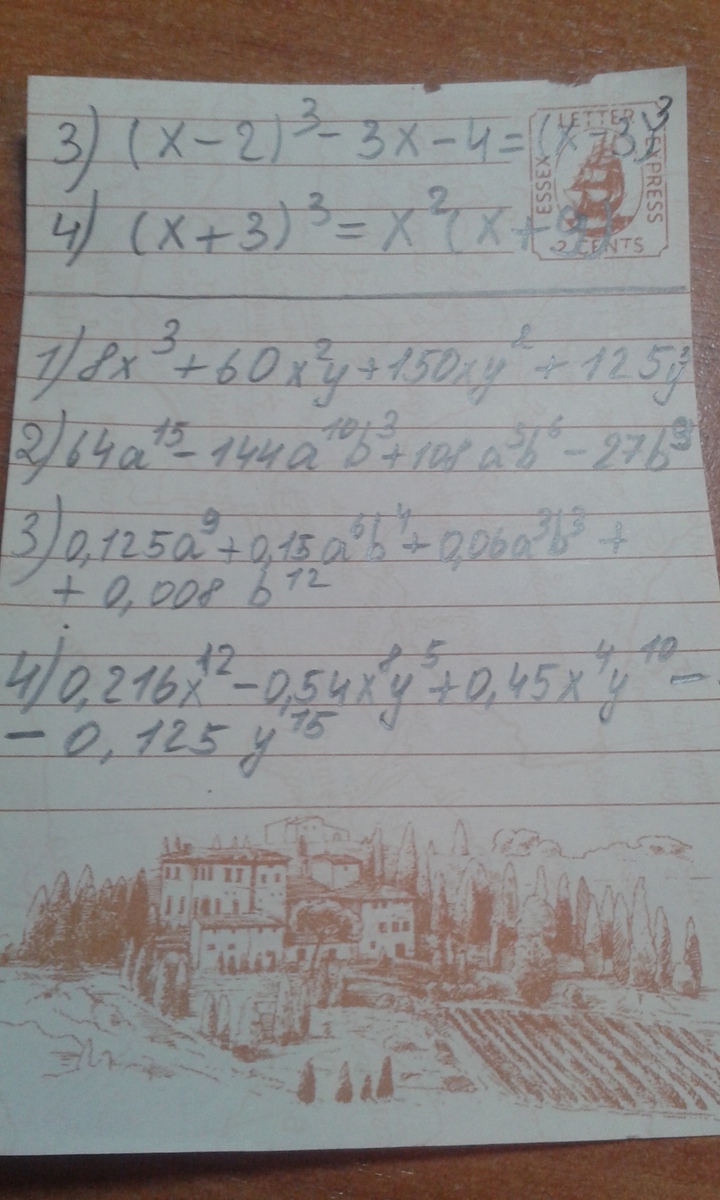 3) (x-2)³ - 3x - 4 = (x-3)³
LETTER
ESSEX
EXPRESS
2 CENTS
4) (x+3)³ = x²(x+9)
1) 8x³ + 60x²y + 150xy² + 125y³
2) 64a¹⁵ - 144a¹⁰b³ + 108a⁵b⁶ - 27b⁹
3) 0,125a⁹ + 0,15a⁶b⁴ + 0,06a³b³ +
+ 0,008 b¹²
4) 0,216x¹² - 0,54x⁸y⁵ + 0,45x⁴y¹⁰ -
- 0,125 y¹⁵